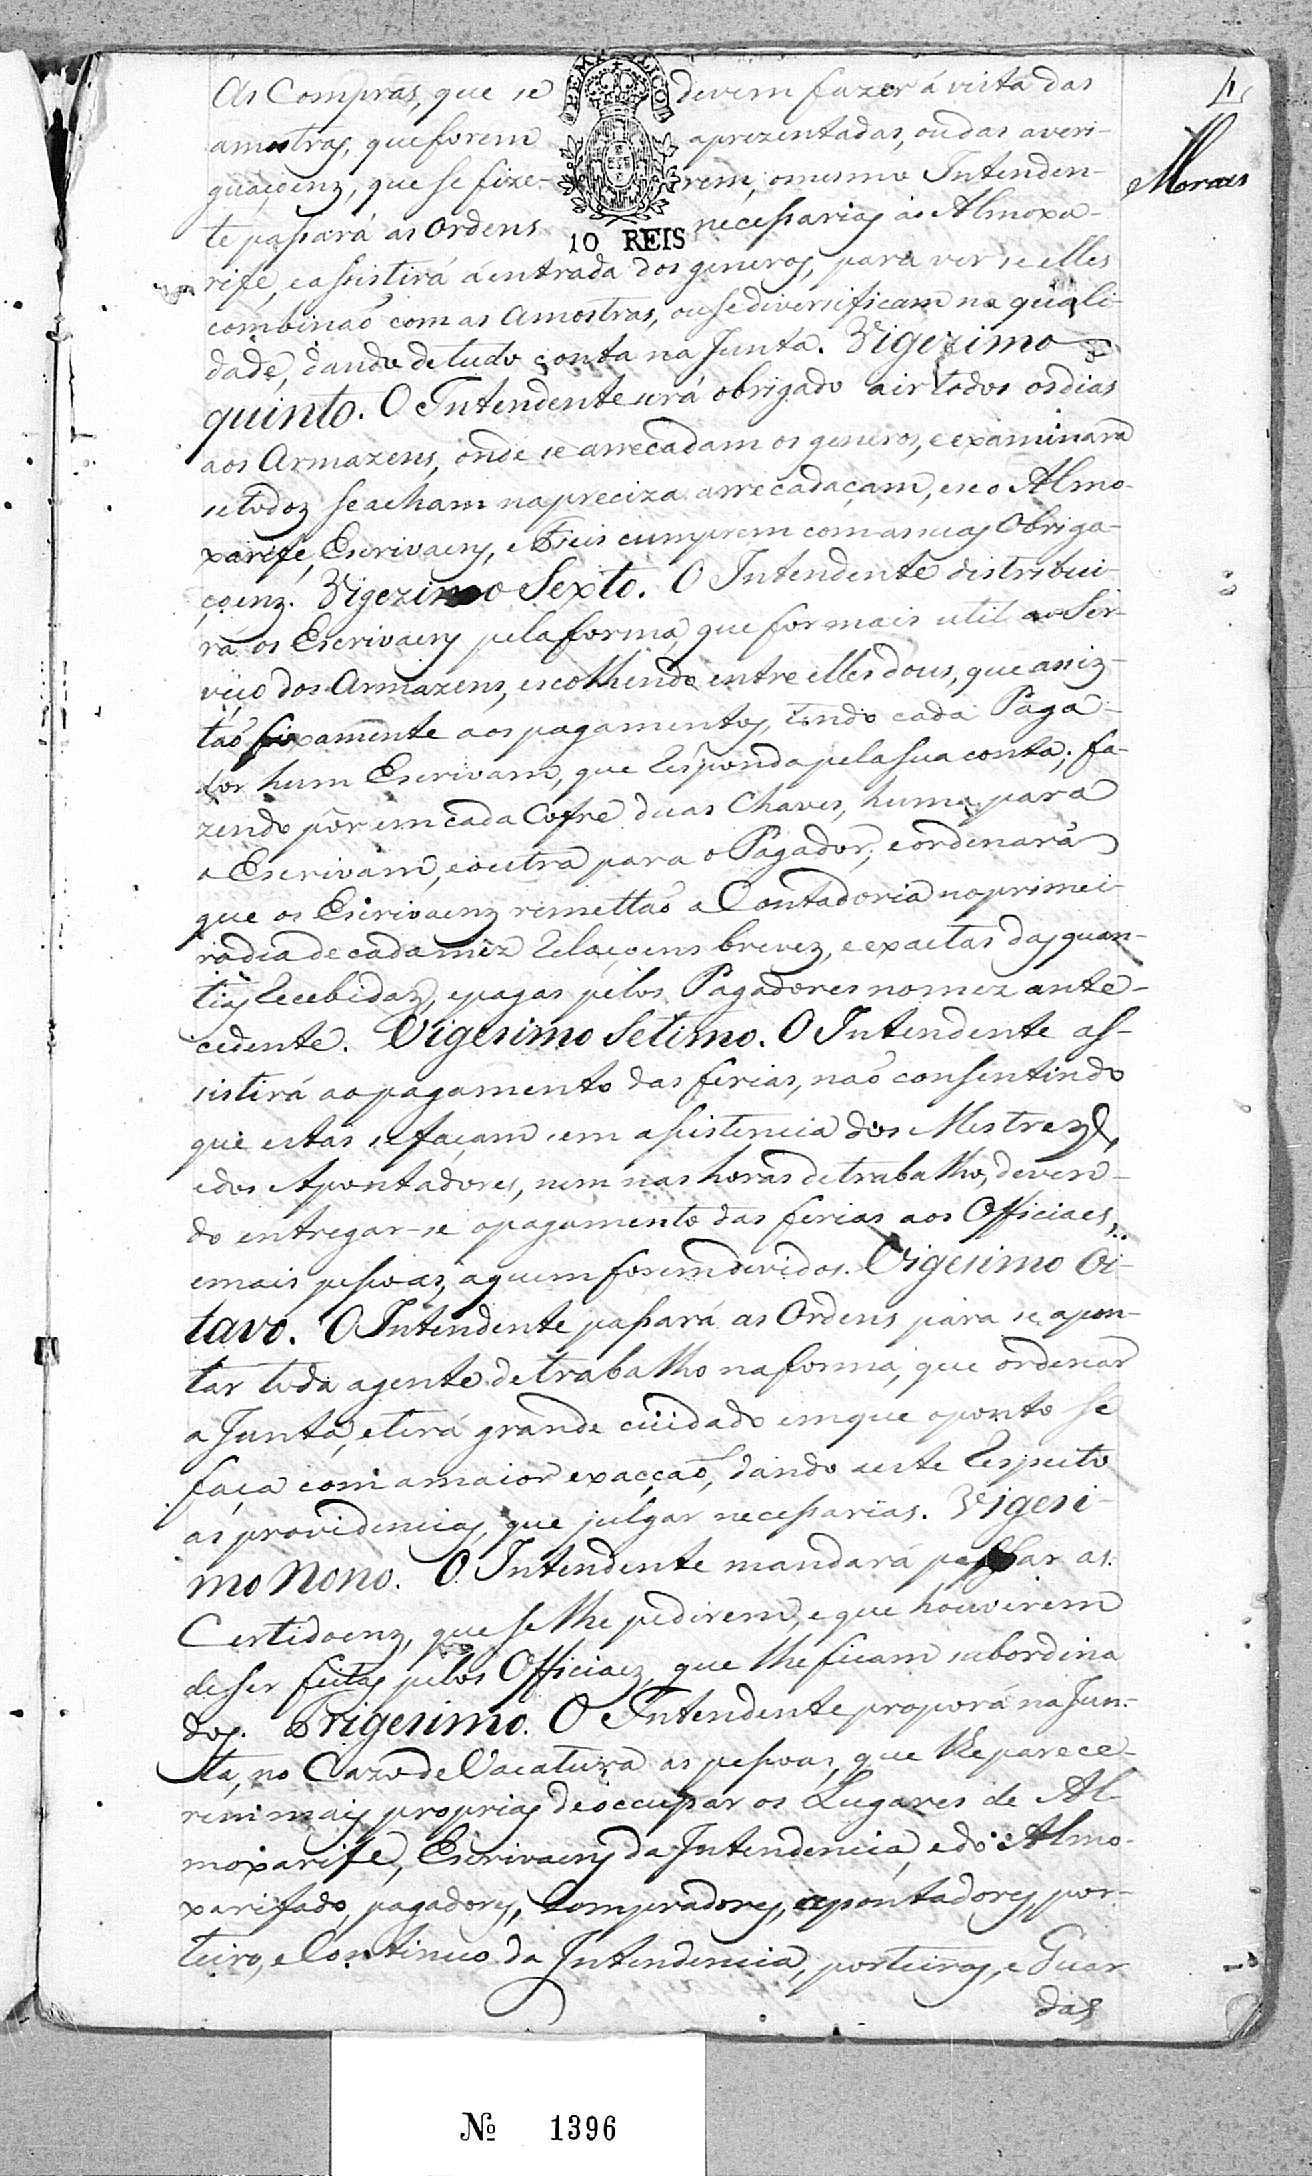 4
Moraes
BEM PUBLICO
10 REIS
As Compras, que se devem fazer á vista das
amostras, que forem aprezentadas, ou das averi-
guaçoenz, que se fize- rem, o mesmo Intenden-
te passará as Ordens necessarias ao Almoxa-
rife, e assistirá á entrada dos generos, para ver se elles
combinaõ com as amostras, ou se diversificam na quali-
dade, dando de tudo conta na Junta. Vigezimo
quinto. O Intendente será obrigado a ir todos os dias
aos Armazens, onde se arrecadam os generos, e examinará
se todoz se acham na preciza arrecadaçam, e se o Almo-
xarife, Escrivaens, e Fieis cumprem com as suas Obriga-
çoenz. Vigezimo Sexto. O Intendente distribui-
rá os Escrivaens pela forma, que for mais util ao Ser-
viço dos Armazens, escolhendo entre elles dous, que assiz-
taõ fixamente aos pagamentos, tendo cada Paga-
dor hum Escrivam, que responda pela sua conta; fa-
zendo pôr em cada Cofre duas Chaves, huma para
o Escrivam, e outra para o Pagador; e ordenará
que os Escrivaenz remettaõ a Contadoria no primei-
ro dia de cada mêz relaçoens brevez, e exactas das quan-
tias recebidaz, e pagas pelos Pagadores no mez ante-
cedente. Vigesimo Setimo. O Intendente as-
sistirá ao pagamento das ferias, naõ consentindo
que estas se façam sem assistencia dos Mestrez,
e dos Apontadores, nem nas horas de trabalho, deven-
do entregar-se o pagamento das ferias aos Officiaes,
e mais pessoas, a quem forem devidos. Vigesimo Oi-
tavo. O Intendente passará as Ordens para se apon-
tar toda a gente de trabalho na forma, que ordenar
a Junta, e terá grande cuidado em que o ponto se
faça com a maior exacçaõ, dando a este respeito
as providencias, que julgar necessarias. Vigesi-
mo Nono. O Intendente mandará passar as
Certidoenz, que se lhe pedirem, e que houverem
de ser feitas pelos Officiaez, que lhe ficam subordina
dos. Trigesimo. O Intendente proporá na Jun-
ta, no Cazo de Vacatura as pessoas, que lhe parece-
rem mais proprias de occupar os Lugares de Al-
moxarife, Escrivaens da Intendencia, e do Almo-
xarifado, pagadores, Compradores, apontadores, por-
teiro, e Continuo da Intendencia, porteiros, e Guar
das
№ 1396